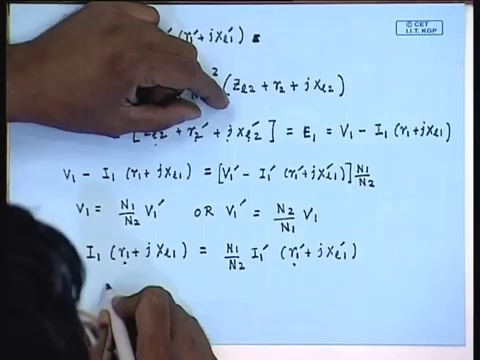 © CET
I.I.T. KGP
(r₁′ + jxℓ₁′) =
² (Zℓ₂ + r₂ + jxℓ₂)
= [Zℓ₂′ + r₂′ + jxℓ₂′] = E₁ = V₁ − I₁ (r₁ + jxℓ₁)
V₁ − I₁ (r₁ + jxℓ₁) = [V₁′ − I₁′ (r₁′ + jxℓ₁′)] N₁/N₂
V₁ = N₁/N₂ V₁′ OR V₁′ = N₂/N₁ V₁
I₁ (r₁ + jxℓ₁) = N₁/N₂ I₁′ (r₁′ + jxℓ₁′)